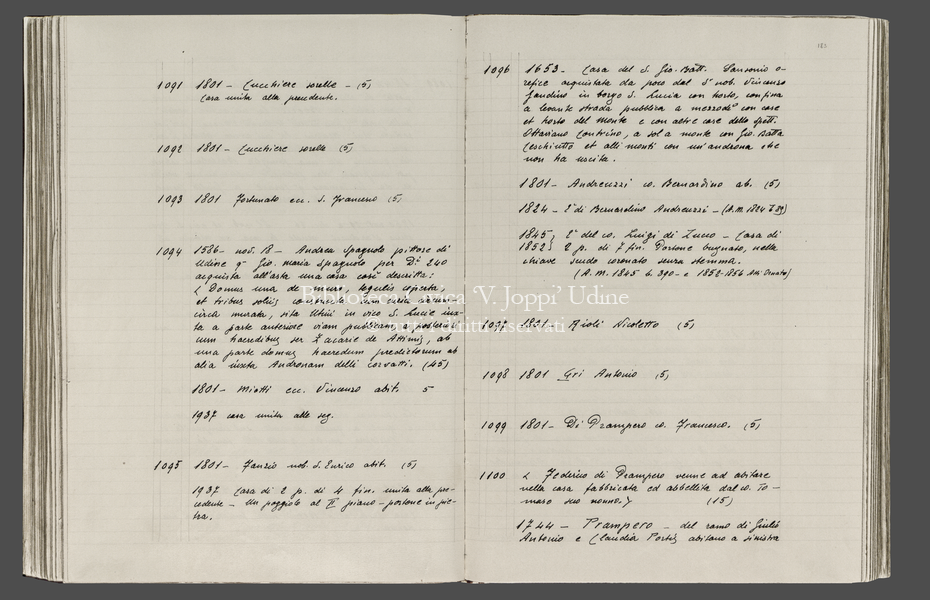 1091 1801 – Cucchiere sorelle – (5)
casa unita alla precedente.
1092 1801 – Cucchiere sorelle (5)
1093 1801 Fortunato ecc. S. Francesco (5)
1094 1586 – nov. 18 – Andrea Spagnolo pittore di
Udine q. Gio. Maria Spagnolo per D.ti 240
acquista all'asta una casa così descritta:
< Domus una de muro, tegulis coperta,
et tribus soliis
circa murata, sita Utini in vico S. Lucie iux-
ta a parte anteriore viam publicam, a posterio-
um haeredibus ser Zacarie de Attimis, ab
una parte domus haeredum predictorum ab
alia iuxta Andronam delli corvatti. (45)
1801 – Miotti ecc. Vincenzo abit. 5
1937 casa unita alle seg.
1095 1801 – Fanzio nob. S. Enrico abit. (5)
1937 casa di 2 p. di 4 fin. unita alla pre-
cedente – Un poggiolo al II piano – portone in pie-
tra.
182
1096 1653 – Casa del S. Gio. Batt. Sansonio o-
refice acquistata da poco dal S.r nob. Vincenzo
Gandino in borgo S. Lucia con horto, confina
a levante strada pubblica a mezzodì con case
et horto del Monte e con altre case dello Spett.
Ottaviano Contrino, a sol a monte con Gio. Batta
Ceschiutto et alli monti con un'androna che
non ha uscita.
1801 – Andreuzzi co. Bernardino ab. (5)
1824 – È di Bernardino Andreuzzi – (A.M. 1824 F 89)
1845} È del co. Luigi di Zucco – Casa di
1852} 2 p. di 7 fin. Portone bugnato, nella
chiave scudo coronato senza stemma.
(A.M. 1845 b. 390 – e 1852-1856 Atti Ornato)
Biblioteca Civica 'V. Joppi' Udine
© tutti i diritti riservati
1097 1801 – Aioli Nicoletto (5)
1098 1801 Gri Antonio (5)
1099 1801 – Di Prampero co. Francesco. (5)
1100 < Federico di Prampero venne ad abitare
nella casa fabbricata ed abbellita dal co. To-
maso suo nonno.> (15)
1744 – Prampero – del ramo di Giulio
Antonio e Claudia Portis abitano a sinistra